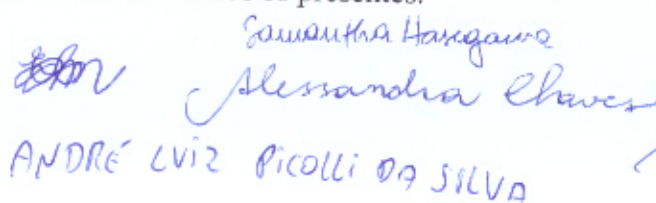 presentes.
Samantha Hasegawa
Alessandra Chaves
ANDRÉ LUIZ PICOLLI DA SILVA